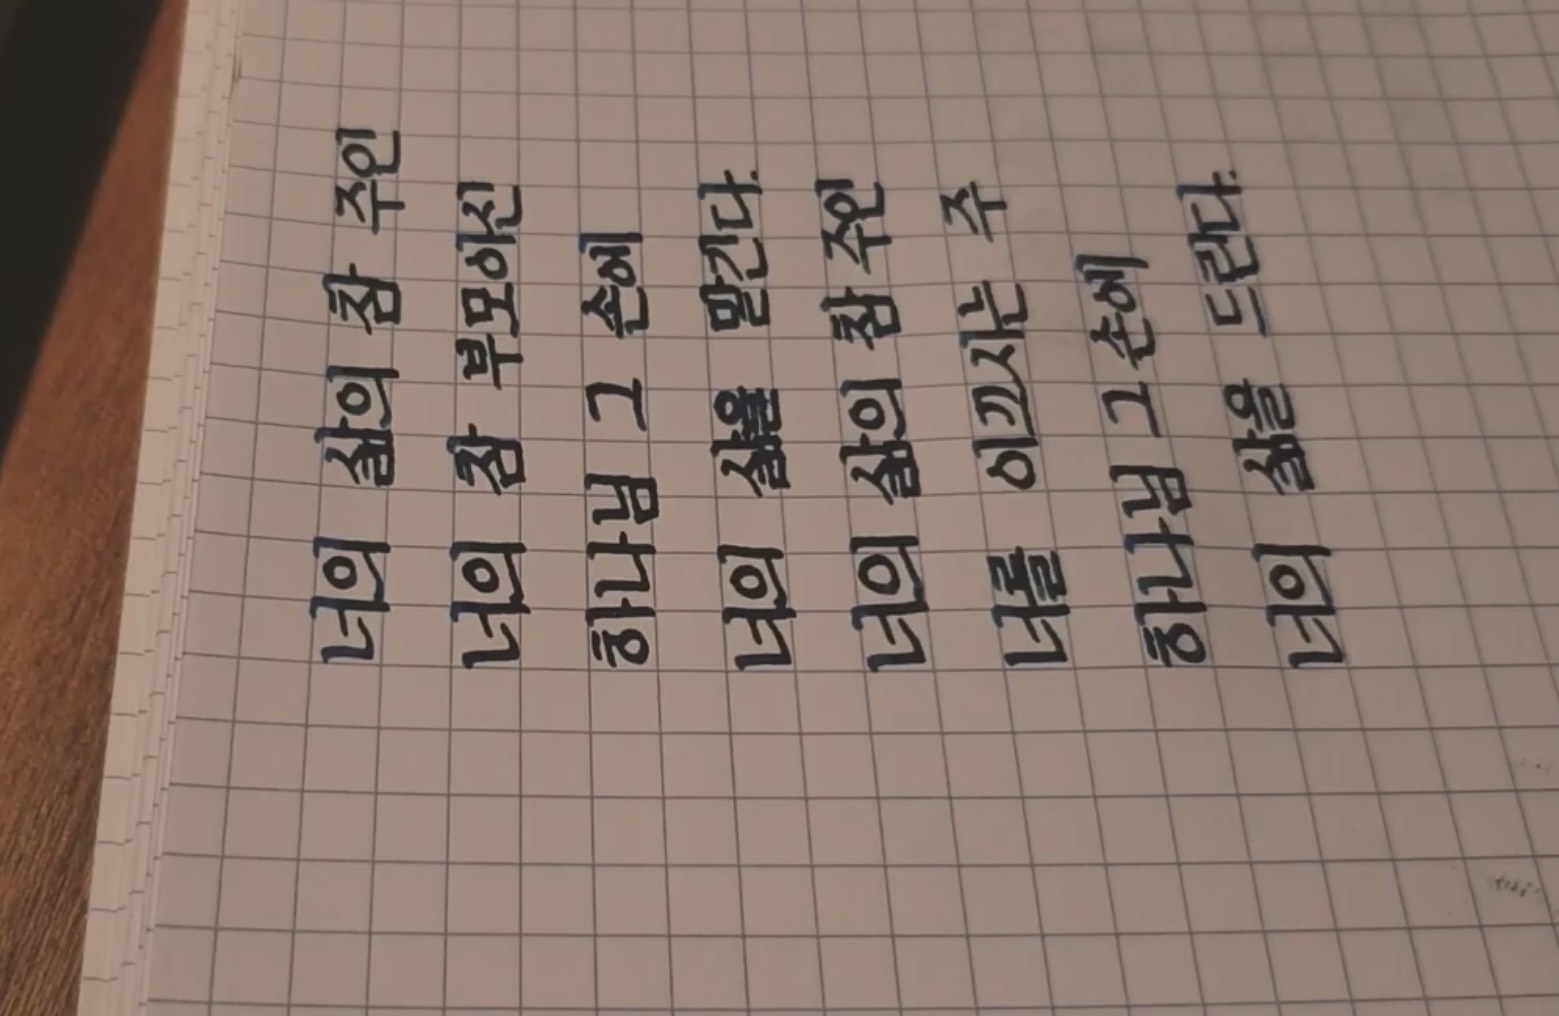 너의 삶의 참 주인
너의 참 부모이신
하나님 그 손에
너의 삶을 맡긴다.
너의 삶의 참 주인
너를 이끄시는 주
하나님 그 손에
너의 삶을 드린다.